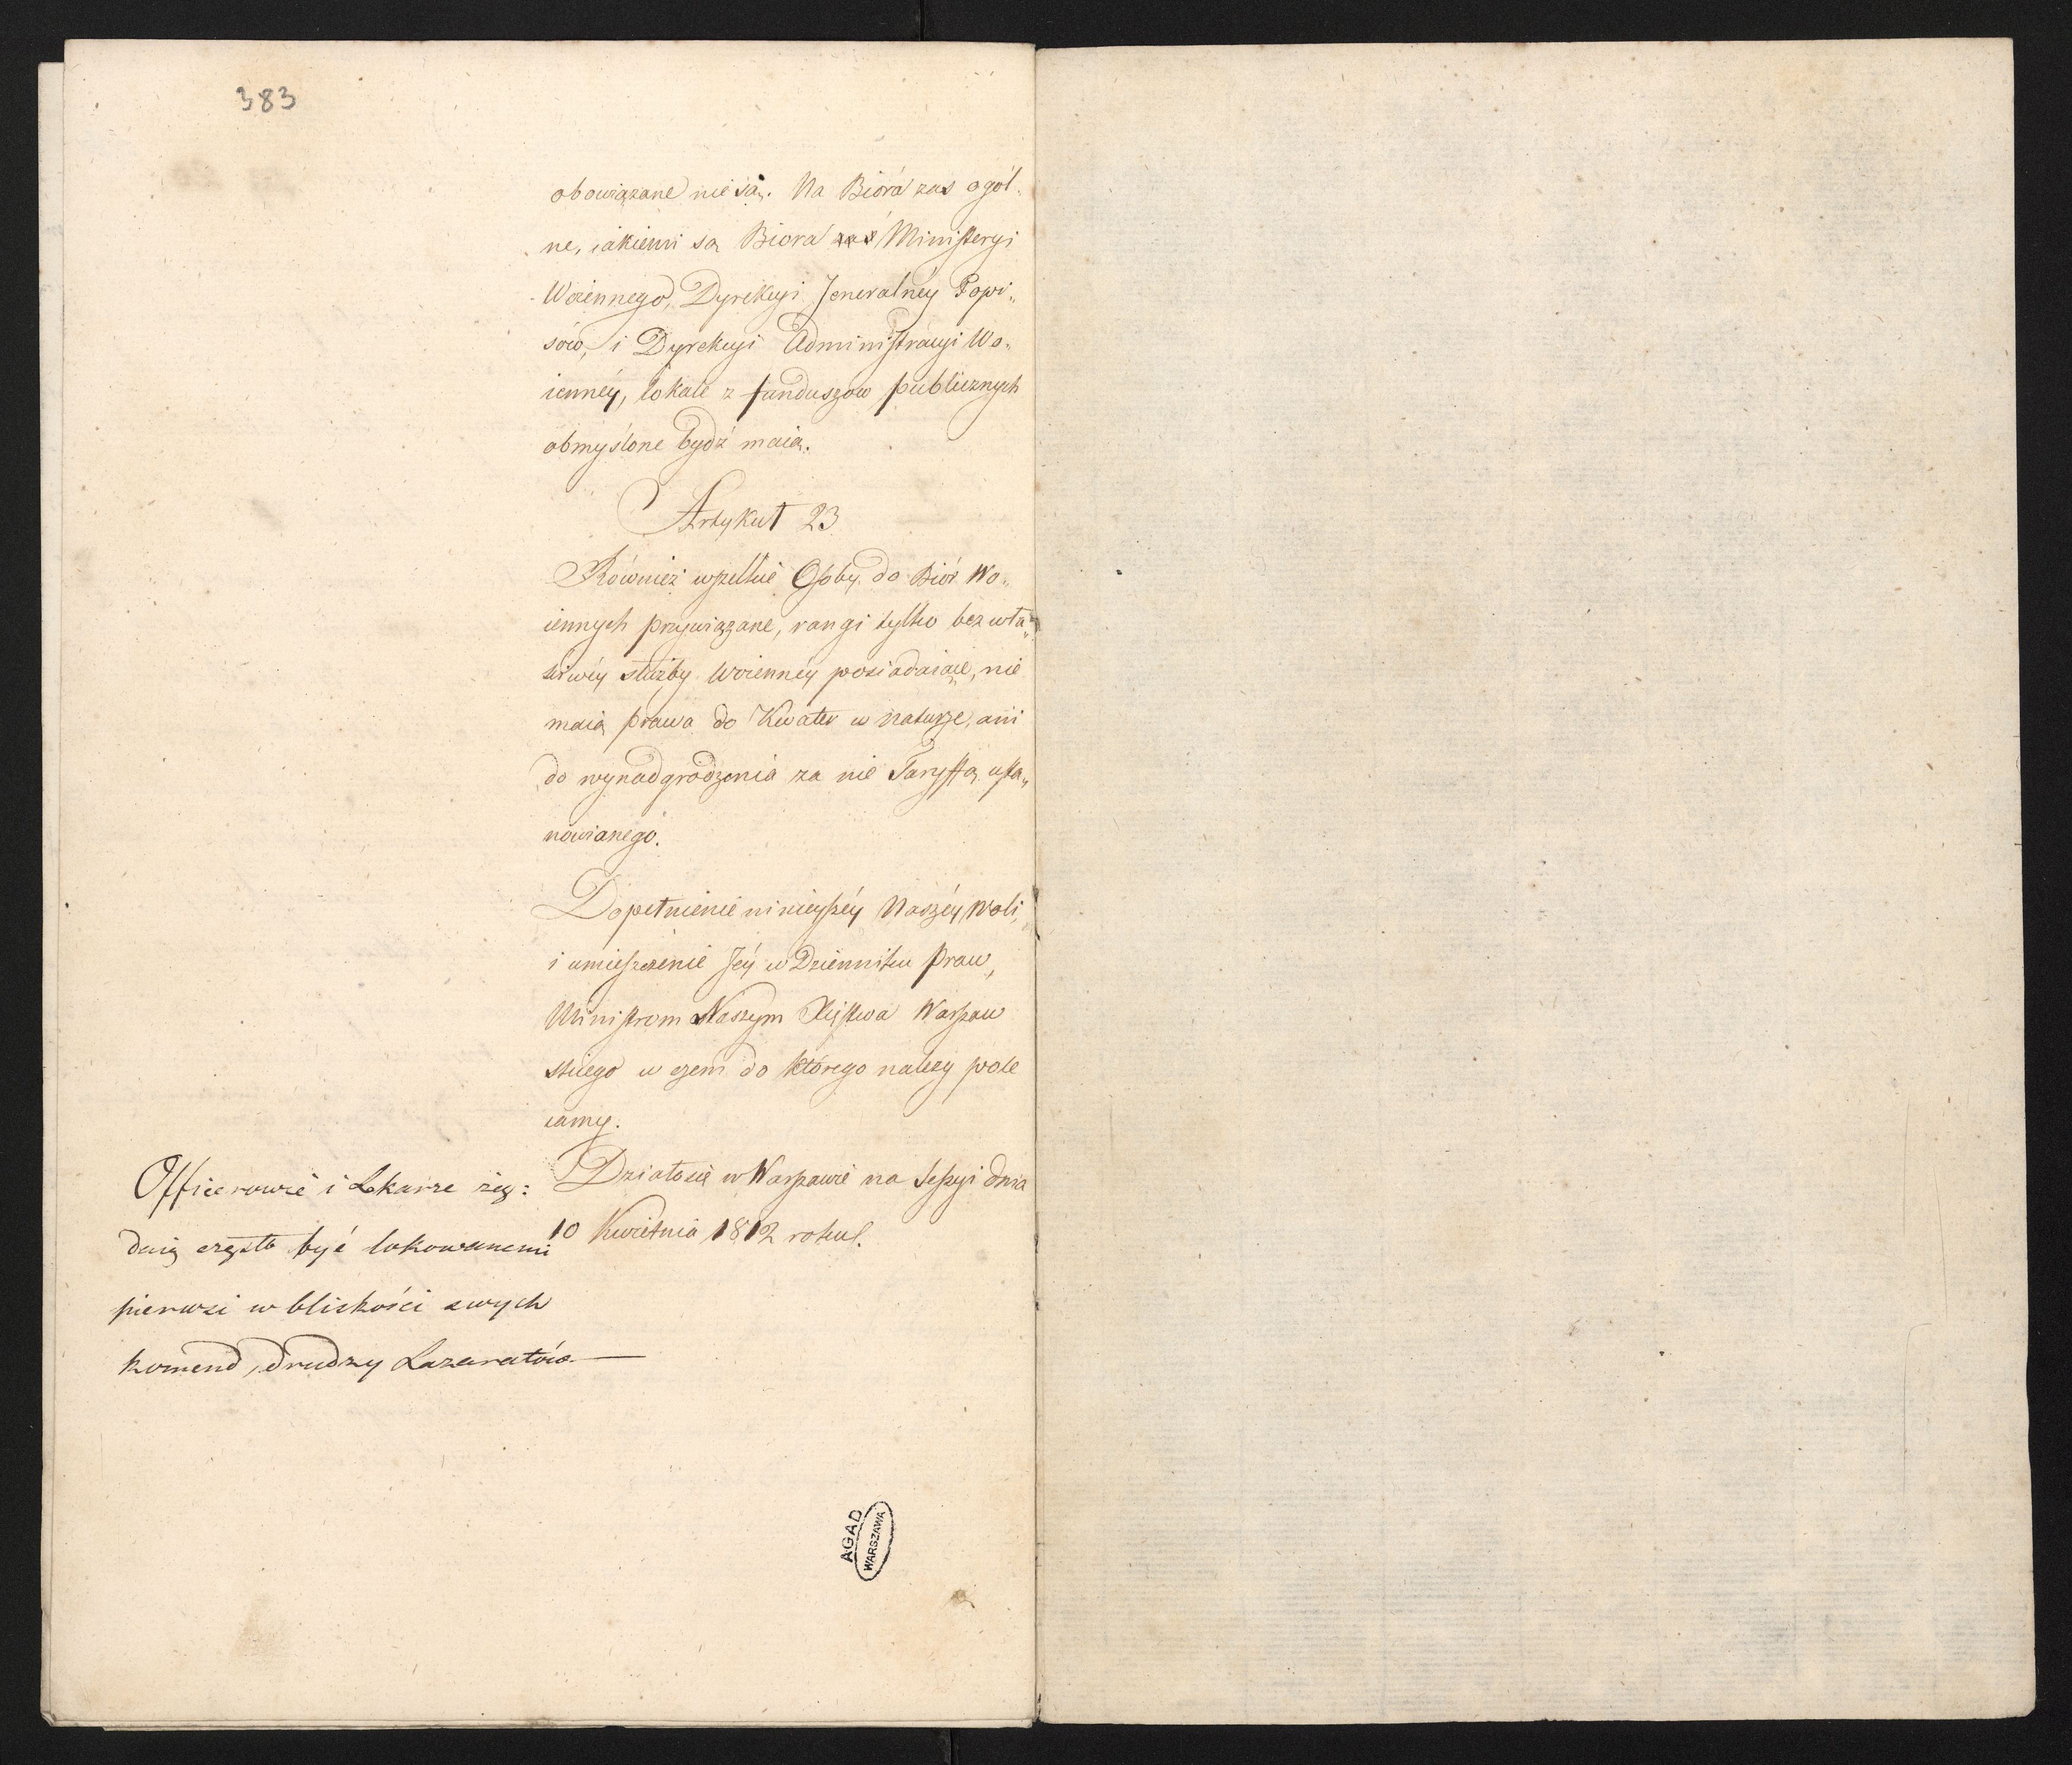 383
obowiązane nie są. Na Biórá zas ogól„
ne, iakiemi są Biora zaś Ministeryi
Woiennego, Dyrekcyi Jeneralnéy Popi„
sów, i Dyrekcyi Administracyi Wo„
iennéy, lokale z funduszow publicznych
obmyślone bydź maią.
Artykuł 23
Również wszelkie Osoby do Biór Wo„
iennych przywiązane, rangi tylko bez wła„
ściwéy służby Woiennéy posiadaiące, nie
maią prawa do Kwater w naturze, ani
do wynadgrodzenia za nie Taryffą usta„
nowionego.
Dopełnienie ninieyszéy Naszéy Woli,
i umieszczenie Jéy w Dzienniku Praw,
Ministrom Naszym Xięstwa Warszaw
skiego w czem do którego należy pole
camy.
Działo się w Warszawie na Sessyi dnia
10 Kwietnia 1812 roku.
Officerowie i Lekarze żą:
daią często być lokowanemi
pierwsi w bliskości swych
komend, drudzy Lazaretów
AGAD
WARSZAWA